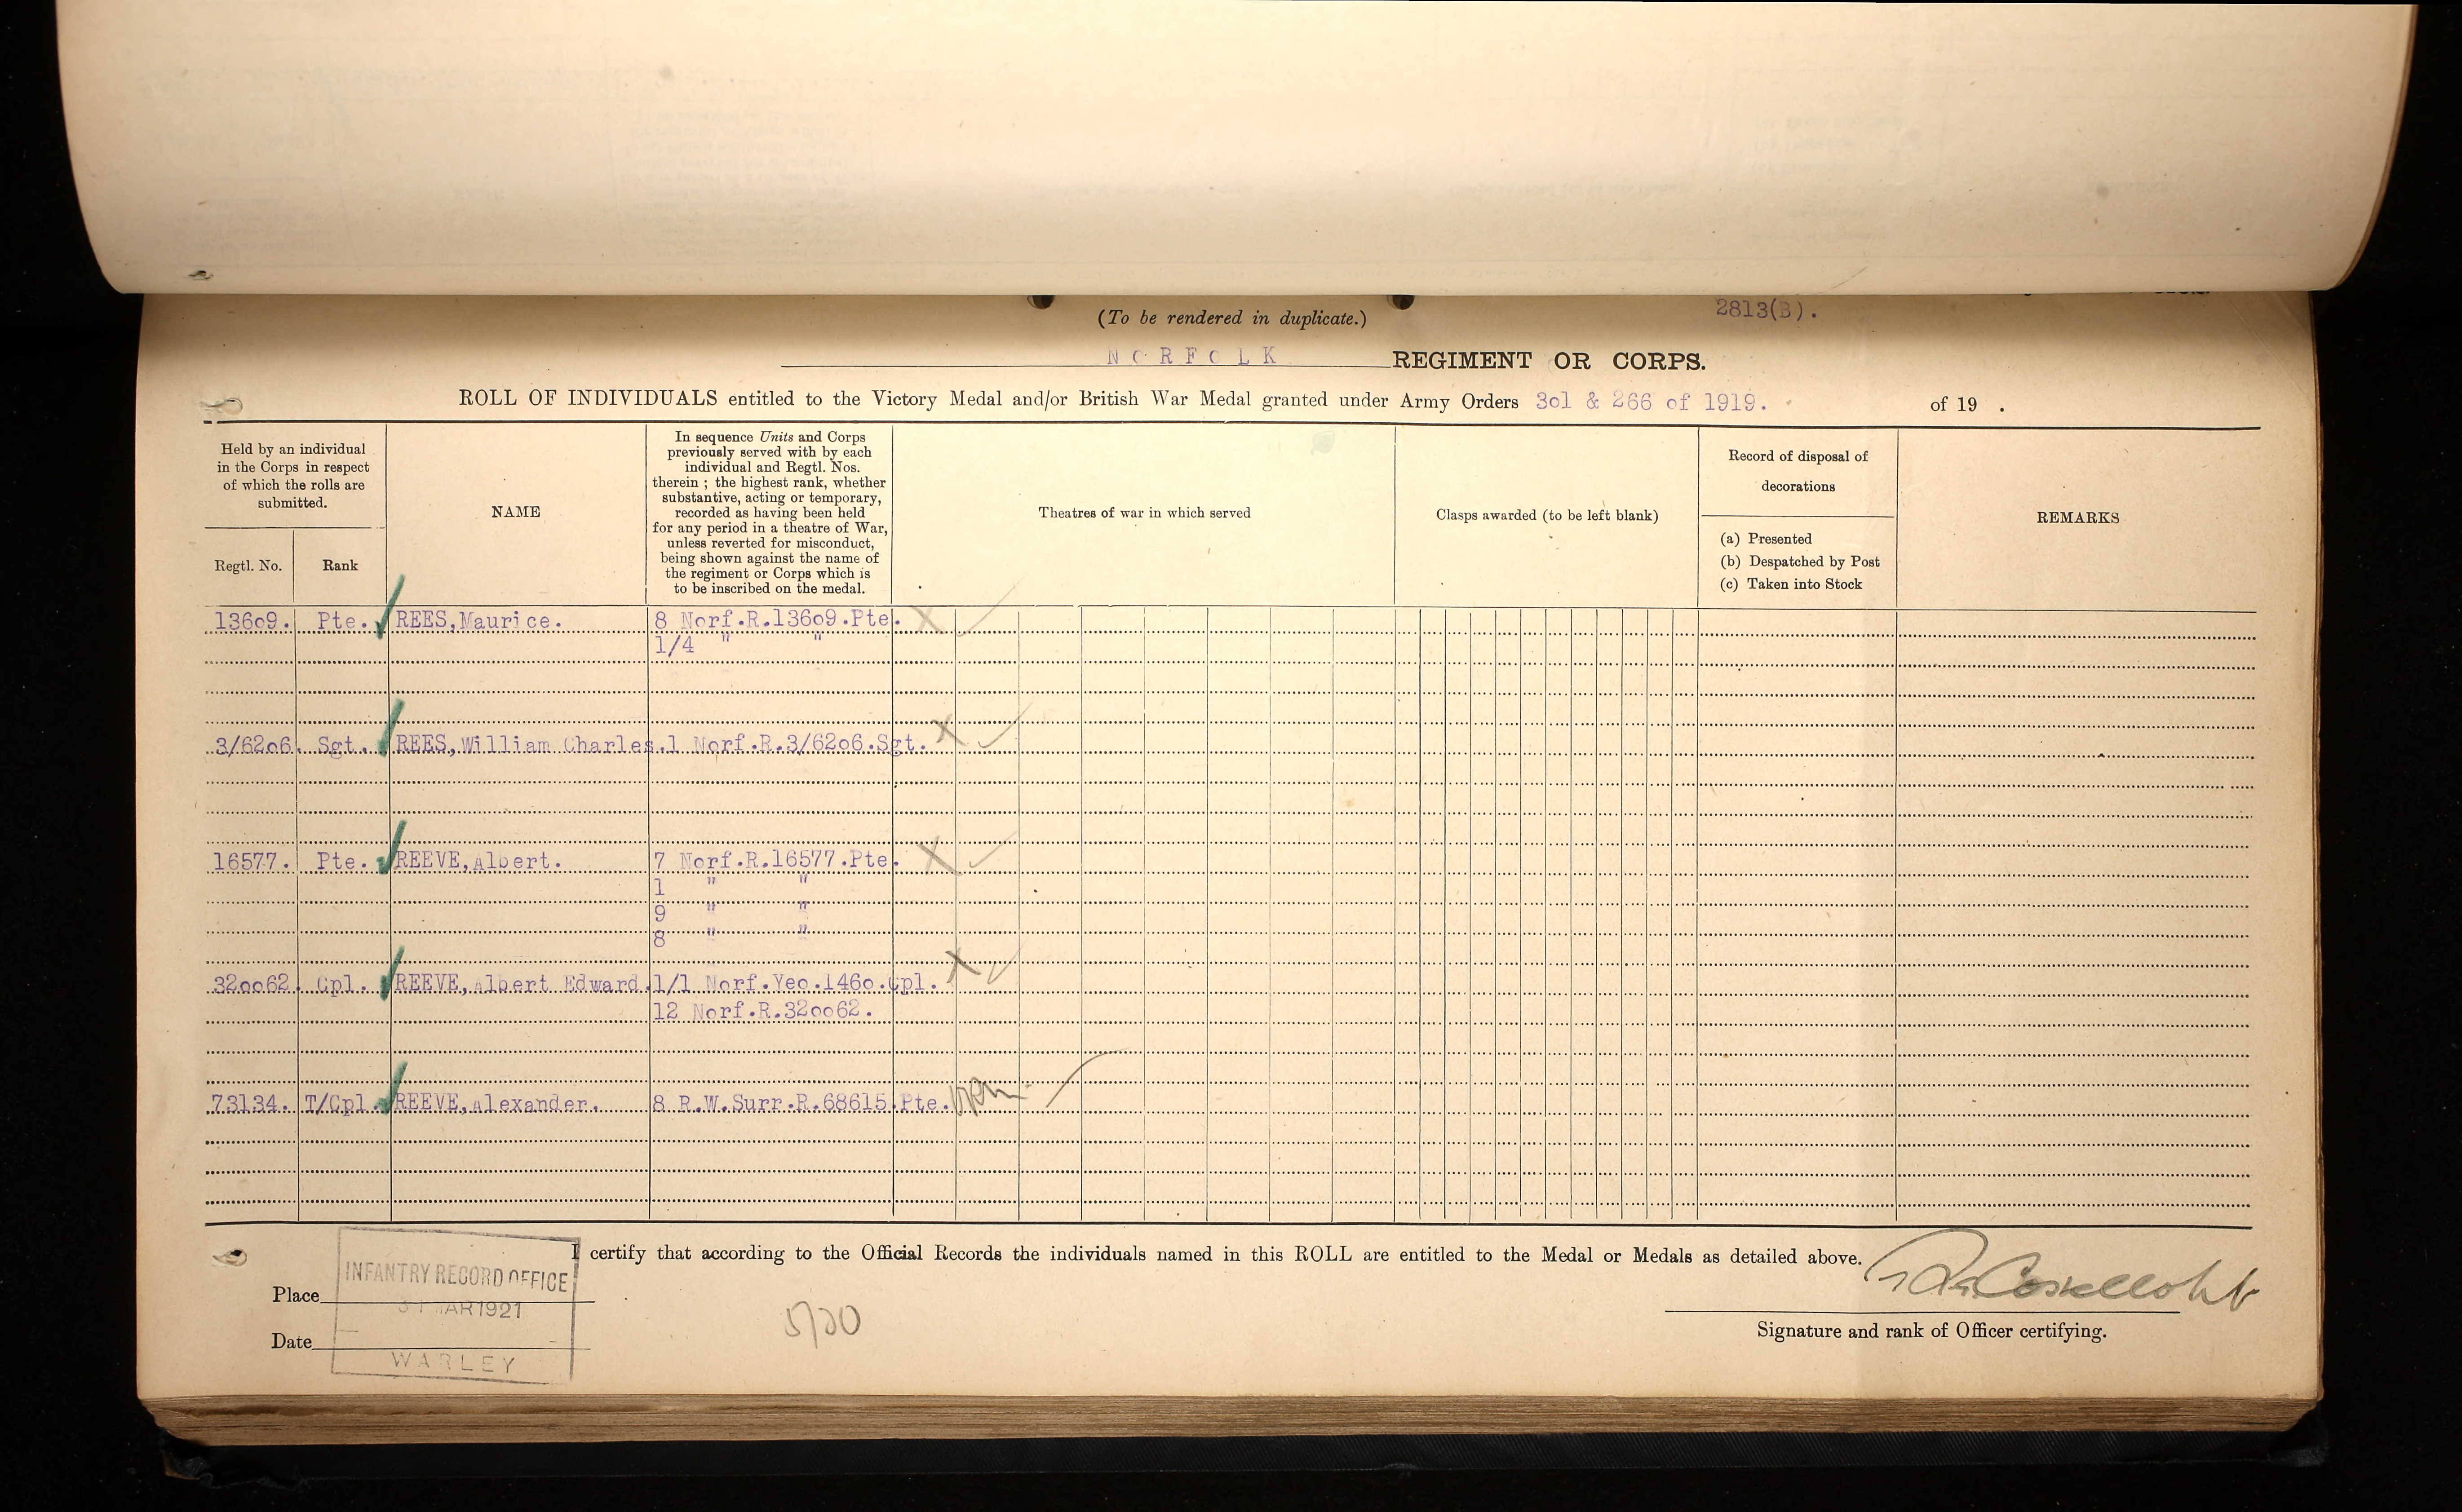 2813(B).
(To be rendered in duplicate.)
NORFOLK REGIMENT OR CORPS.
ROLL OF INDIVIDUALS entitled to the Victory Medal and/or British War Medal granted under Army Orders 3o1 & 266 of 1919. of 19 .
Held by an individual
in the Corps in respect
of which the rolls are
submitted.
Regtl. No. Rank
NAME
In sequence Units and Corps
previously served with by each
individual and Regtl. Nos.
therein ; the highest rank, whether
substantive, acting or temporary,
recorded as having been held
for any period in a theatre of War,
unless reverted for misconduct,
being shown against the name of
the regiment or Corps which is
to be inscribed on the medal.
Theatres of war in which served
Clasps awarded (to be left blank)
Record of disposal of
decorations
(a) Presented
(b) Despatched by Post
(c) Taken into Stock
REMARKS
136o9. Pte. REES,Maurice. 8 Norf.R.136o9.Pte.
1/4 " "
3/62o6. Sgt. REES,William Charles.1 Norf.R.3/62o6.Sgt.
16577. Pte. REEVE,Albert. 7 Norf.R.16577.Pte.
1 " "
9 " "
8 " "
32oo62. Cpl. REEVE,Albert Edward.1/1 Norf.Yeo.146o.Cpl.
12 Norf.R.32oo62.
73134. T/Cpl. REEVE,Alexander. 8 R.W.Surr.R.68615.Pte.
I certify that according to the Official Records the individuals named in this ROLL are entitled to the Medal or Medals as detailed above.
INFANTRY RECORD OFFICE
Place
MAR 1921
Date
WARLEY
5/20
Signature and rank of Officer certifying.